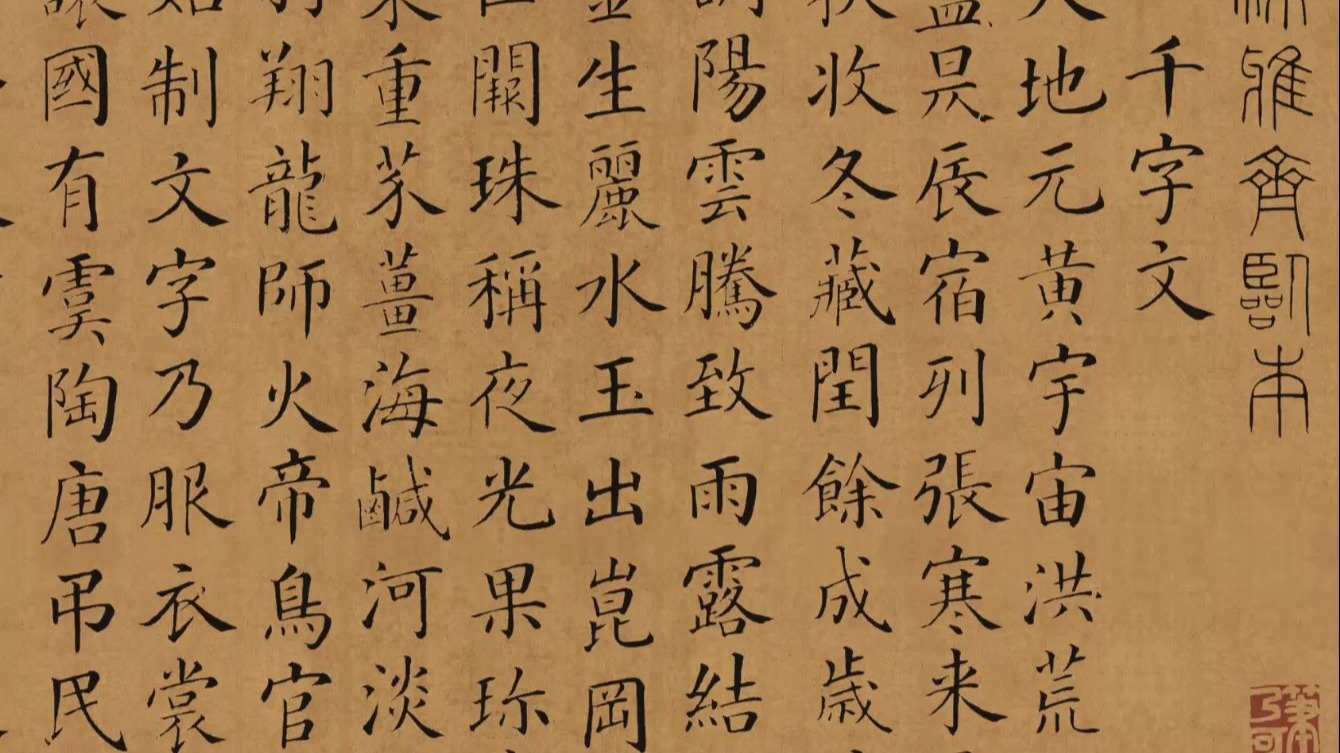 雅齊臨本
千字文
地元黃宇宙洪荒
昃辰宿列張寒来
收冬藏閏餘成歲
陽雲騰致雨露結
生麗水玉出崑岡
闕珠稱夜光果珎
重芥薑海鹹河淡
翔龍師火帝鳥官
制文字乃服衣裳
國有虞陶唐吊民